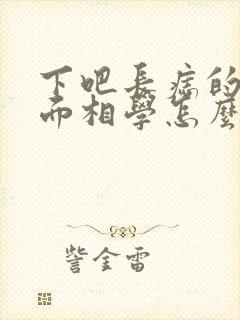 下吧長痣的
面相學怎麼
訾金雷